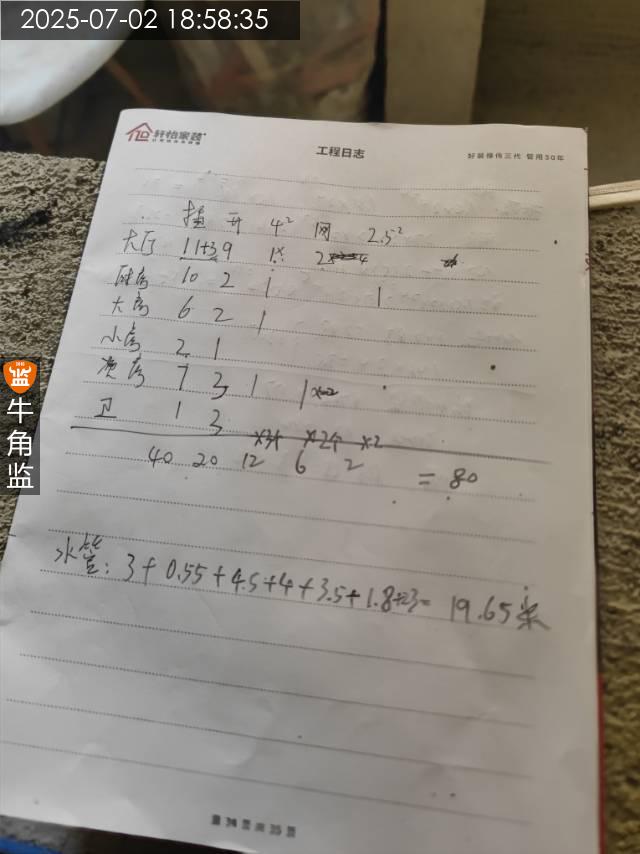 2025-07-02 18:58:35
轩怡家装
工程日志
好装修传三代 管用30年
插 开 4² 网 2.5²
大厅 11+3 9 1× 2
厨房 10 2 1 1
大房 6 2 1
小房 2 1
7 3 1 1×2
卫 1 3
×3个 ×2个 ×2
40 20 12 6 2 = 80
水管: 3+0.55+4.5+4+3.5+1.8+2.3= 19.65米
牛角监
第 34 页 共 35 页